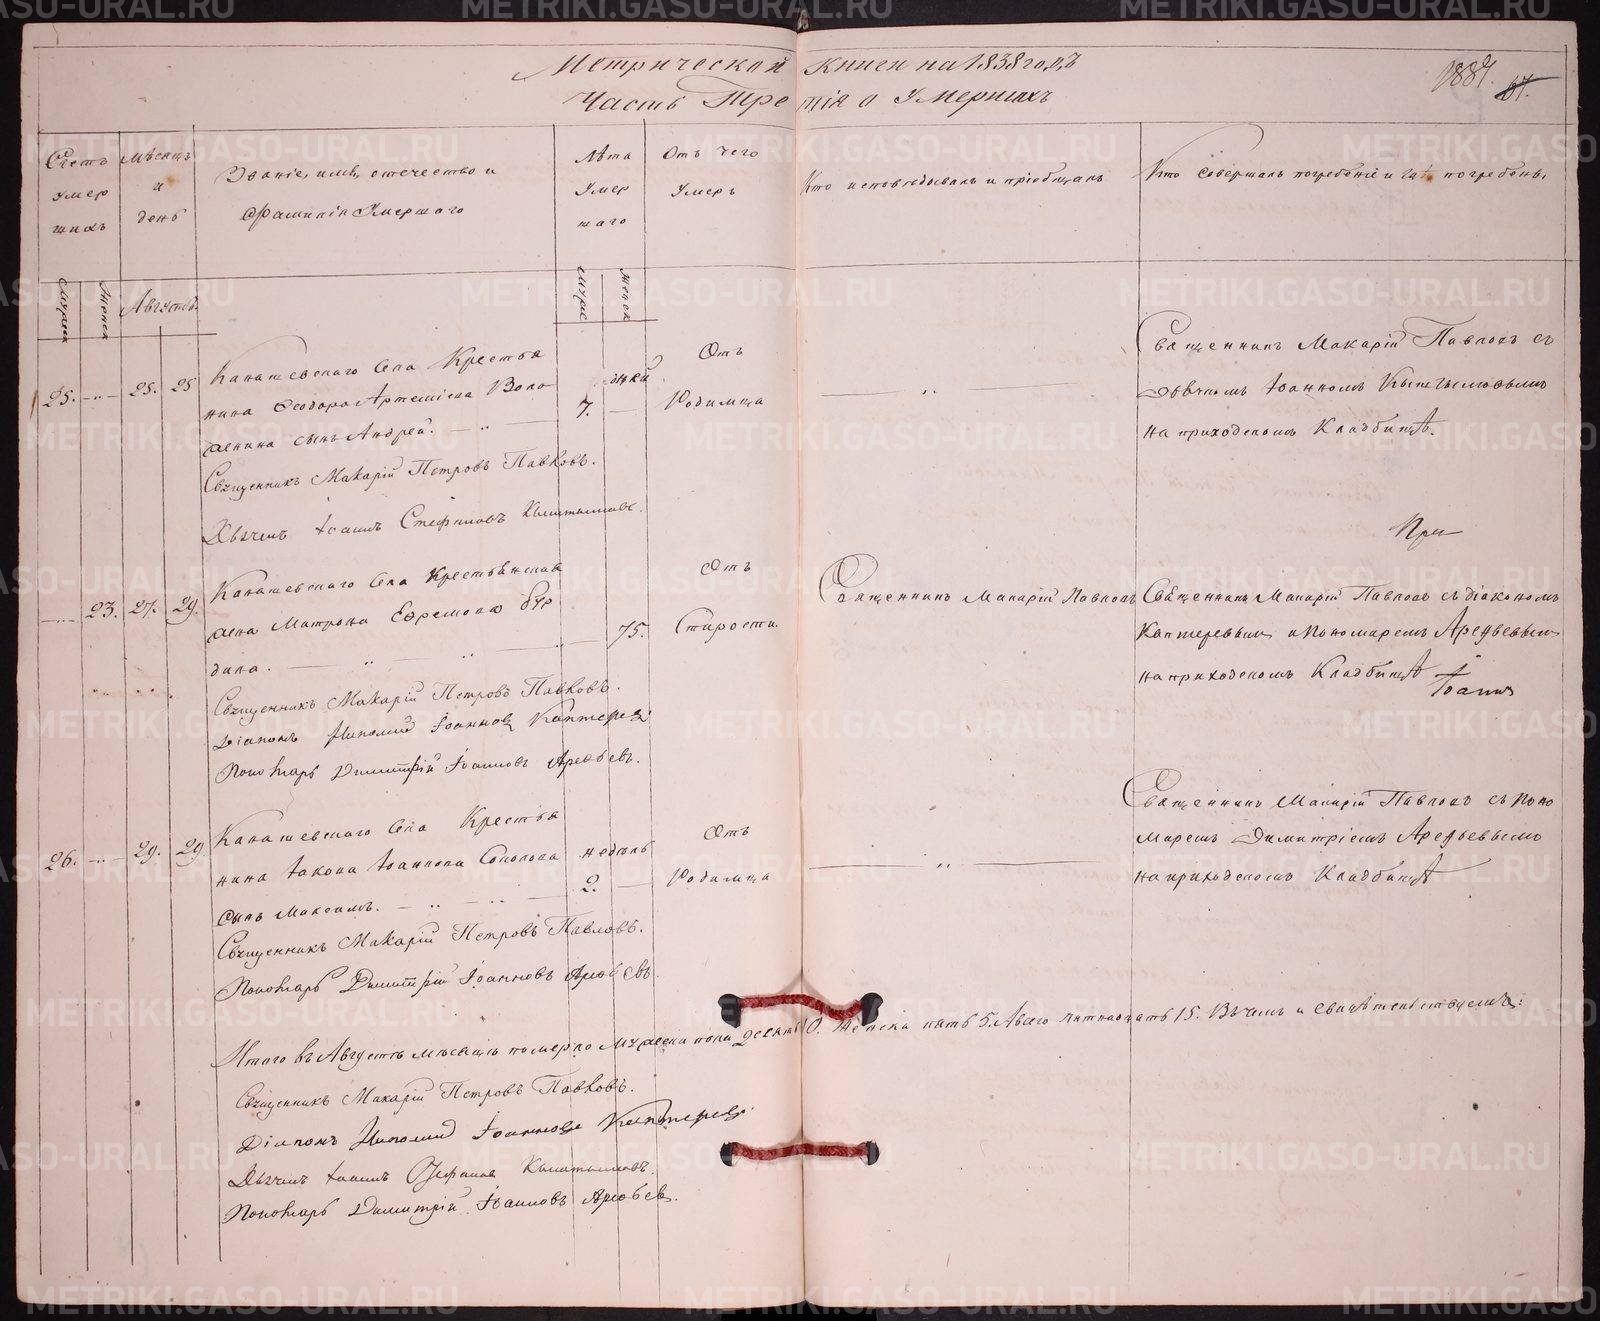 Метрической книги на 1838 годъ
Часть Третія о Умершихъ
1887. 87.
Счетъ умершихъ
Мѣсяцъ и день
Званіе, имя, отечество и
фамилія Умершаго
Лѣта Умершаго
Отъ чего Умеръ
Кто исповѣдывалъ и пріобщалъ
Кто совершалъ погребеніе и гдѣ погребенъ.
Мужск Женск Августъ.
Мужес Женск
25. — 25. 25
Канашевскаго Села Крестья
нина Феодора Артеміева Воло
сына Андрей.
дней
7.
Отъ
Родимца
Священникъ Макарій Павловъ съ
Дьячкомъ Іоанномъ
на приходскомъ Кладбищѣ.
Священникъ Макарій Петровъ Павловъ.
Дьячекъ Іоаннъ Стефановъ
При
23. 27. 29.
Канашевскаго Села Крестьянская
Матрона Ефремова
75.
Отъ
Старости.
Священникъ Макарій Павловъ
Священникъ Макарій Павловъ съ діакономъ
Каптеревымъ и Пономаремъ Арефьевымъ
на приходскомъ Кладбищѣ
Іоаннъ
Священникъ Макарій Петровъ Павловъ.
Діаконъ Іоанновъ Каптеревъ
Пономарь Димитрій Іоанновъ Арефьевъ.
26. — 29. 29.
Канашевскаго Села Крестья
нина Іакова Іоаннова Соколова
сынъ Максимъ.
недѣль
2.
Отъ
Родимца
Священникъ Макарій Павловъ съ Поно
маремъ Димитріемъ Арефьевымъ
на приходскомъ Кладбищѣ
Священникъ Макарій Петровъ Павловъ.
Пономарь Димитрій Іоанновъ Арефьевъ
Итого въ Августѣ мѣсяцѣ померло Мужеска пола десять 10. Женска пять 5. Всего пятнадцать 15. Въ чемъ и свидѣтельствуемъ:
Священникъ Макарій Петровъ Павловъ.
Діаконъ Іоанновъ Каптеревъ
Дьячекъ Іоаннъ Стефановъ
Пономарь Димитрій Іоанновъ Арефьевъ.
METRIKI.GASO-URAL.RU